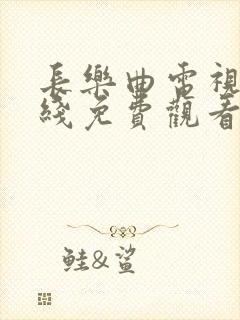 長樂曲電視
綫免費觀看
鮭&鯊